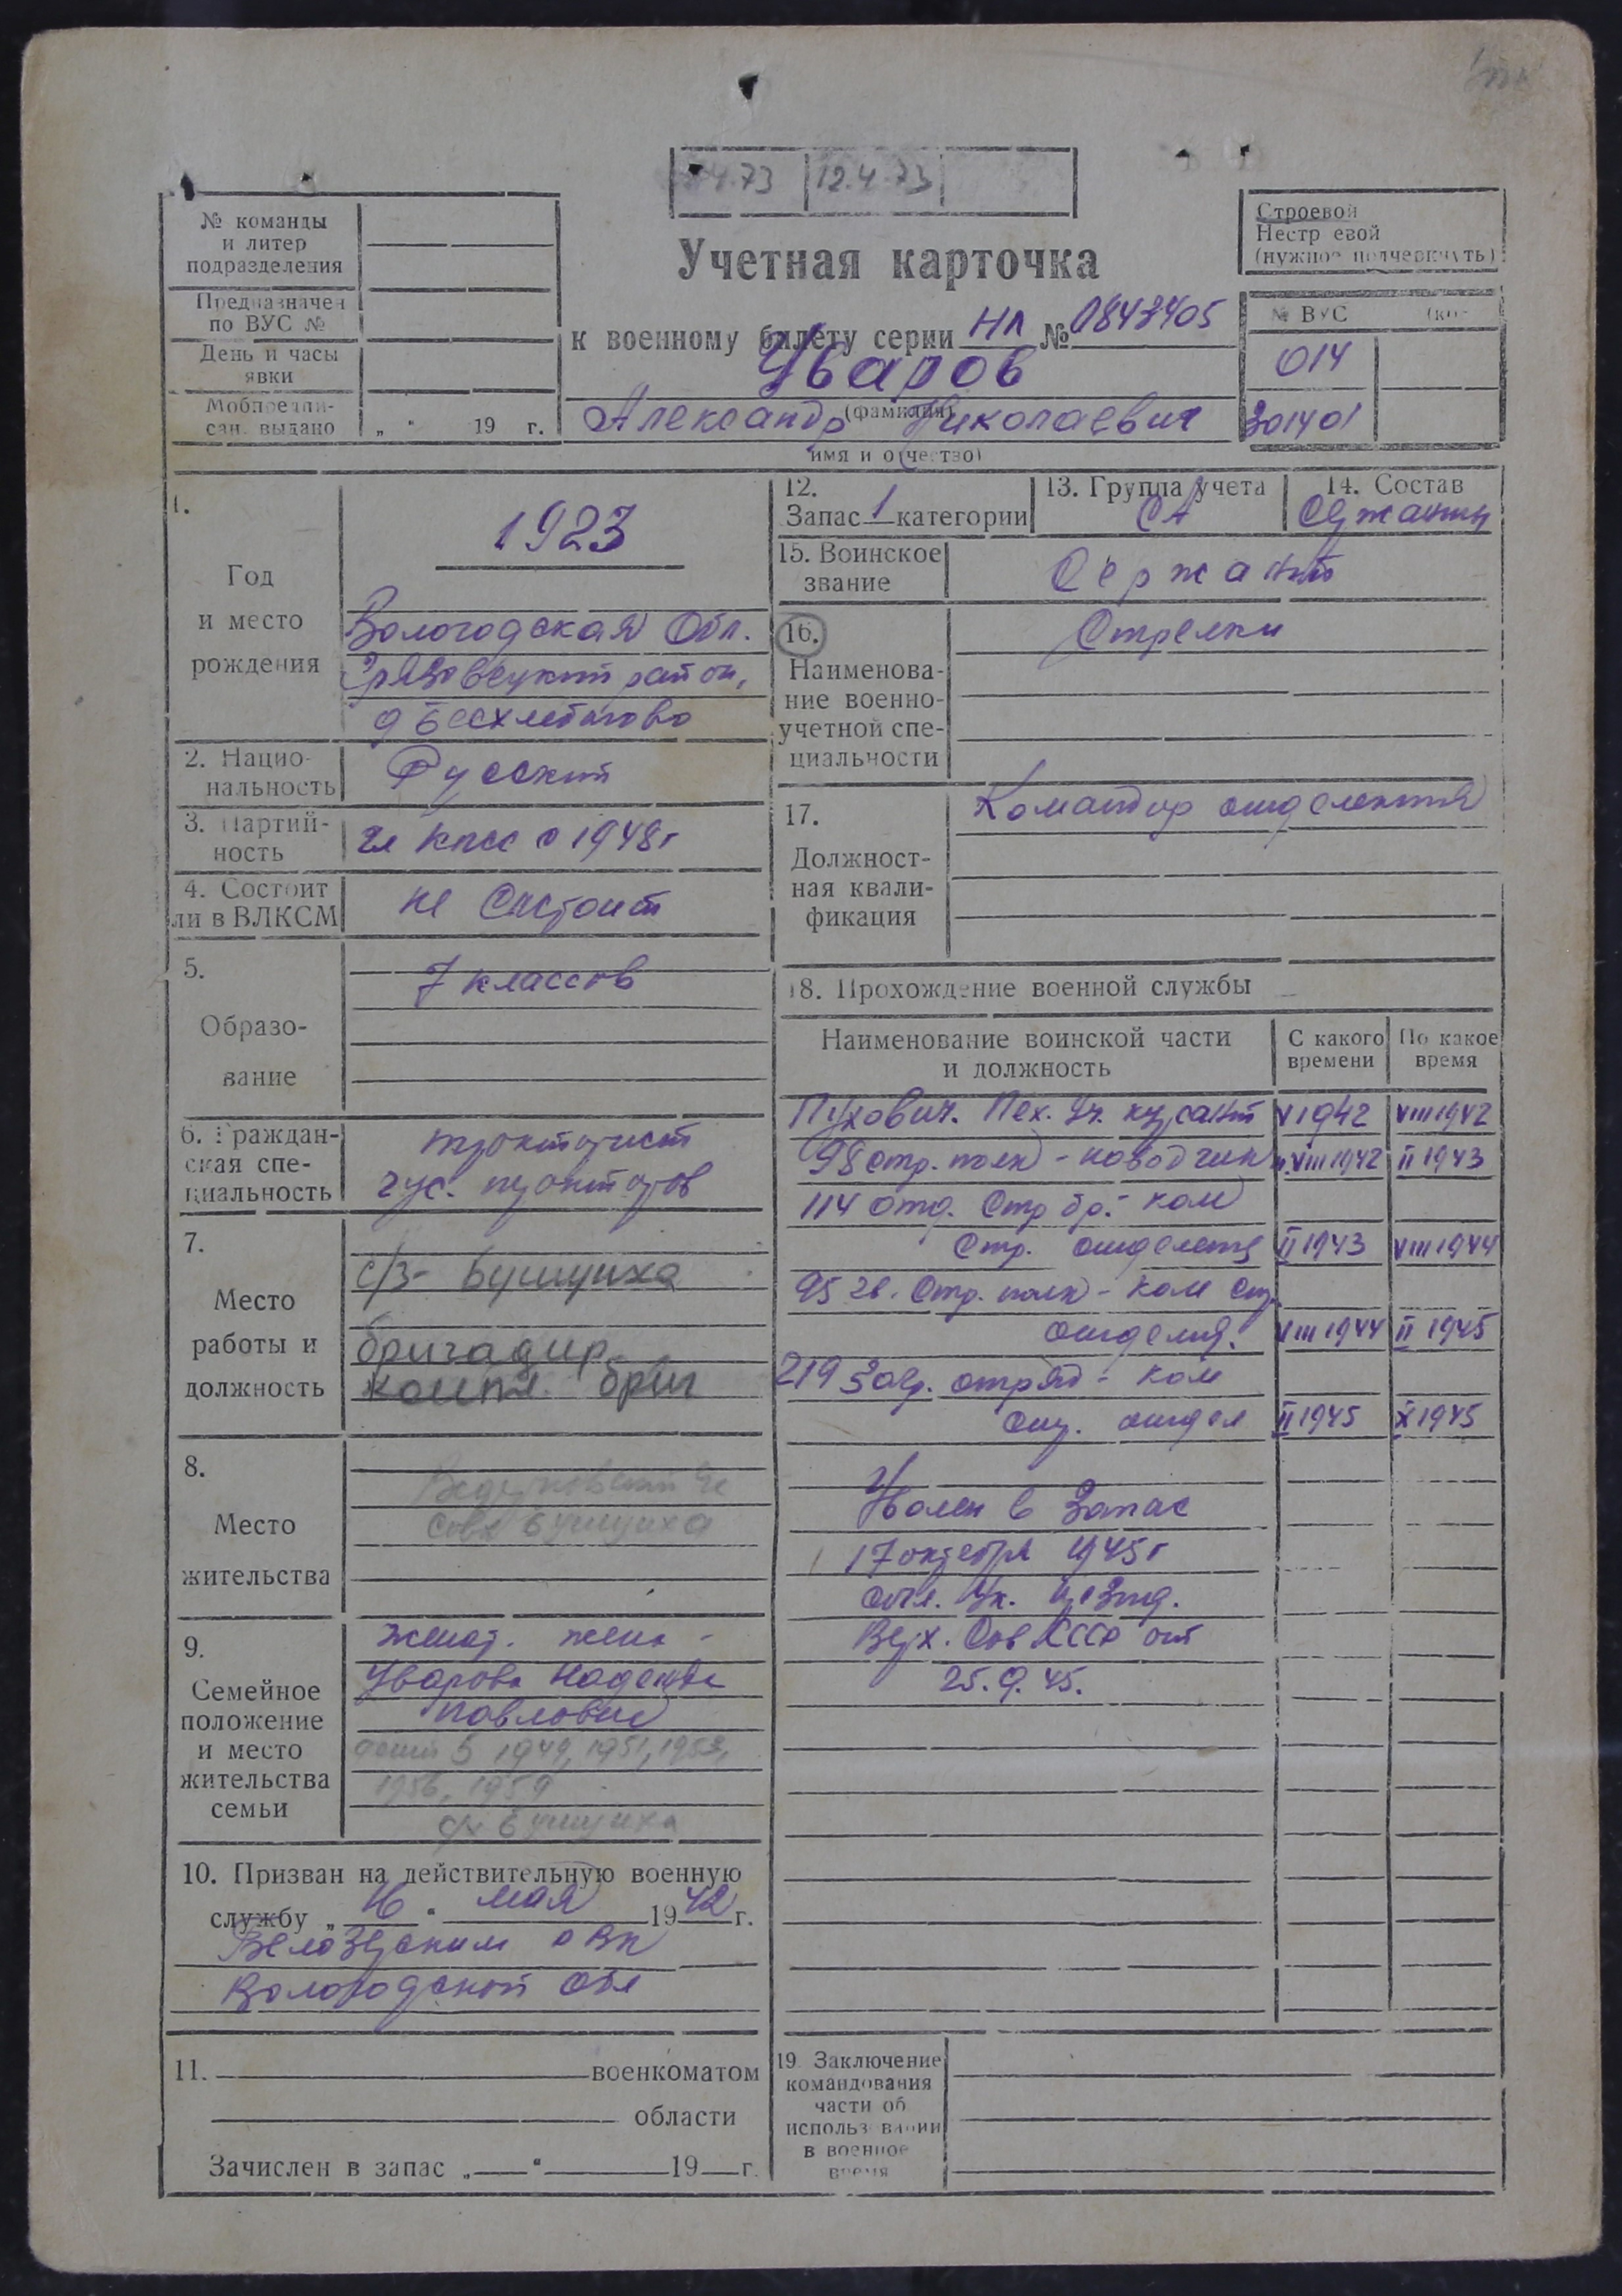 4.73 12.4.73
№ команды
и литер
подразделения
Предназначен
по ВУС №
День и часы
явки
Мобпредпи-
сан. выдано „ “ 19 г.
Учетная карточка
к военному билету серии НЛ № 0843405
Уваров
(фамилия)
Александр Николаевич
имя и отчество)
Строевой
Нестроевой
(нужное подчеркнуть)
№ ВУС (ко-
014
301401
1.
Год
и место
рождения
1923
Вологодская Обл.
Грязовецкий район,
д Бесхлебигово
2. Нацио-
нальность
Русский
3. Партий-
ность
чл КПСС с 1948г
4. Состоит
ли в ВЛКСМ
не Состоит
5.
Образо-
вание
7 классов
6. Граждан-
ская спе-
циальность
тракторист
гус. тракторов
7.
Место
работы и
должность
с/з- Бушуиха
бригадир
компл. бриг
8.
Место
жительства
совх Бушуиха
9.
Семейное
положение
и место
жительства
семьи
Женат. жена -
Уварова Надежда
Павловна
дети 5 1949, 1951, 1953,
1956, 1959
Бушуиха
10. Призван на действительную военную
службу „ 16 “ мая 1942 г.
Белозерским РВК
Вологодской обл
11. военкоматом
области
Зачислен в запас „ “ 19 г.
12.
Запас 1 категории
13. Группа учета
СА
14. Состав
Сержанты
15. Воинское
звание
Сержант
16.
Наименова-
ние военно-
учетной спе-
циальности
Стрелки
17.
Должност-
ная квали-
фикация
Командир отделения
18. Прохождение военной службы
Наименование воинской части
и должность
С какого
времени
По какое
время
Пухович. Пех. Уч. курсант V 1942 VIII 1942
98 стр. полк - наводчик VIII 1942 II 1943
114 отд. Стр бр. - ком
Стр. отделения II 1943 VIII 1944
95 гв. Стр. полк - Ком Стр.
отделения. VIII 1944 II 1945
219 Загр. отряд - Ком
Стр. отдел II 1945 X 1945
Уволен в Запас
17 октября 1945г
осн. Ук. Презид.
Верх. Сов СССР от
25.9.45.
19. Заключение
командования
части об
использовании
в военное
время